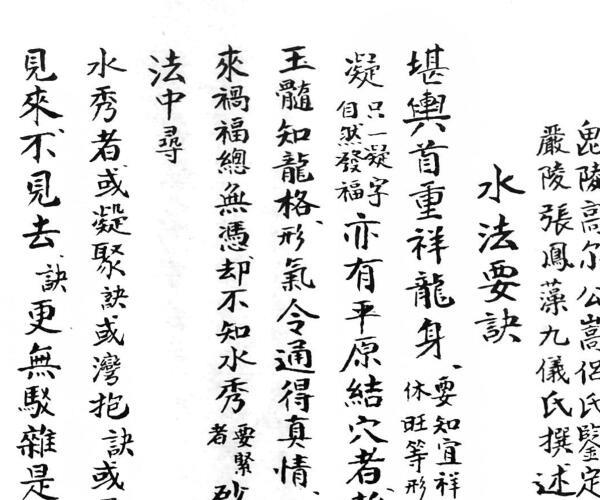 毘陵高尔公嵩侶氏鑒定
嚴陵張鳳藻九儀氏撰述
水法要訣
堪輿首重祥龍身、要知宜祥休旺等形
凝只一凝字自然發福亦有平原結穴者
玉髓知龍格、形氣令通得真情、
來禍福總無憑、却不知水秀要緊者砂
法中尋
水秀者、或凝聚訣或灣抱訣或
見來、不見去、訣更無駁雜是